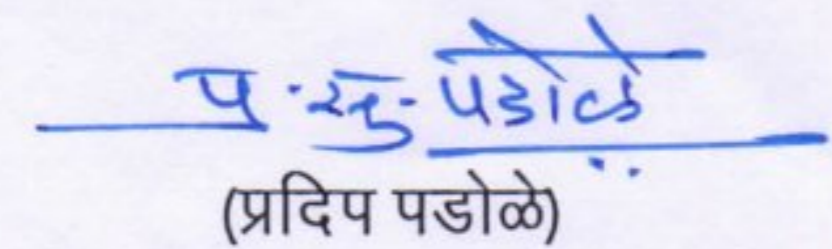 प. सु. पडोळे
(प्रदिप पडोळे)